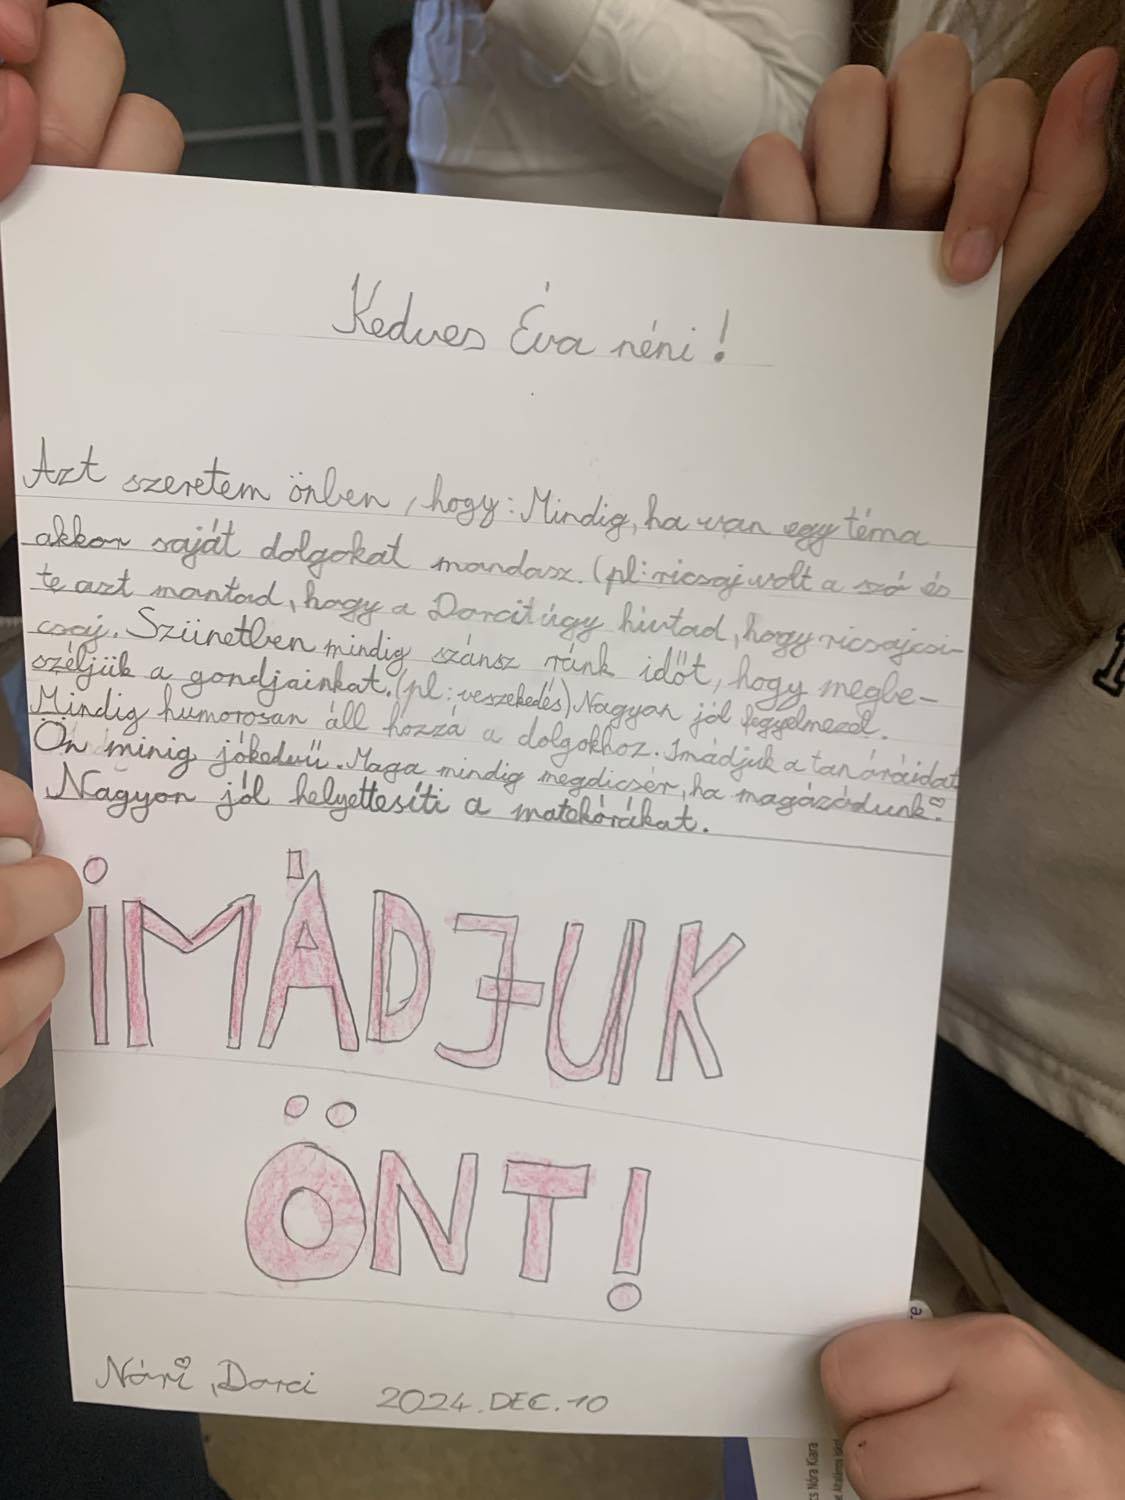 Kedves Éva néni!
Azt szeretem önben, hogy: Mindig, ha van egy téma
akkor saját dolgokat mondasz. (pl: ricsaj volt a szó és
te azt mantad, hogy a Darcit úgy hívtad, hogy ricsajcsi-
csaj. Szünetben mindig szánsz ránk időt, hogy megbe-
széljük a gondjainkat. (pl: veszekedés) Nagyon jól fegyelmezel.
Mindig humorosan áll hozzá a dolgokhoz. Imádjuk a tanáráidat
Ön minig jókedvű. Maga mindig megdicsér, ha magázódunk.
Nagyon jól helyettesíti a matekórákat.
IMÁDJUK
ÖNT!
Nóri, Darci
2024. DEC. 10
cs Nóra Kiara